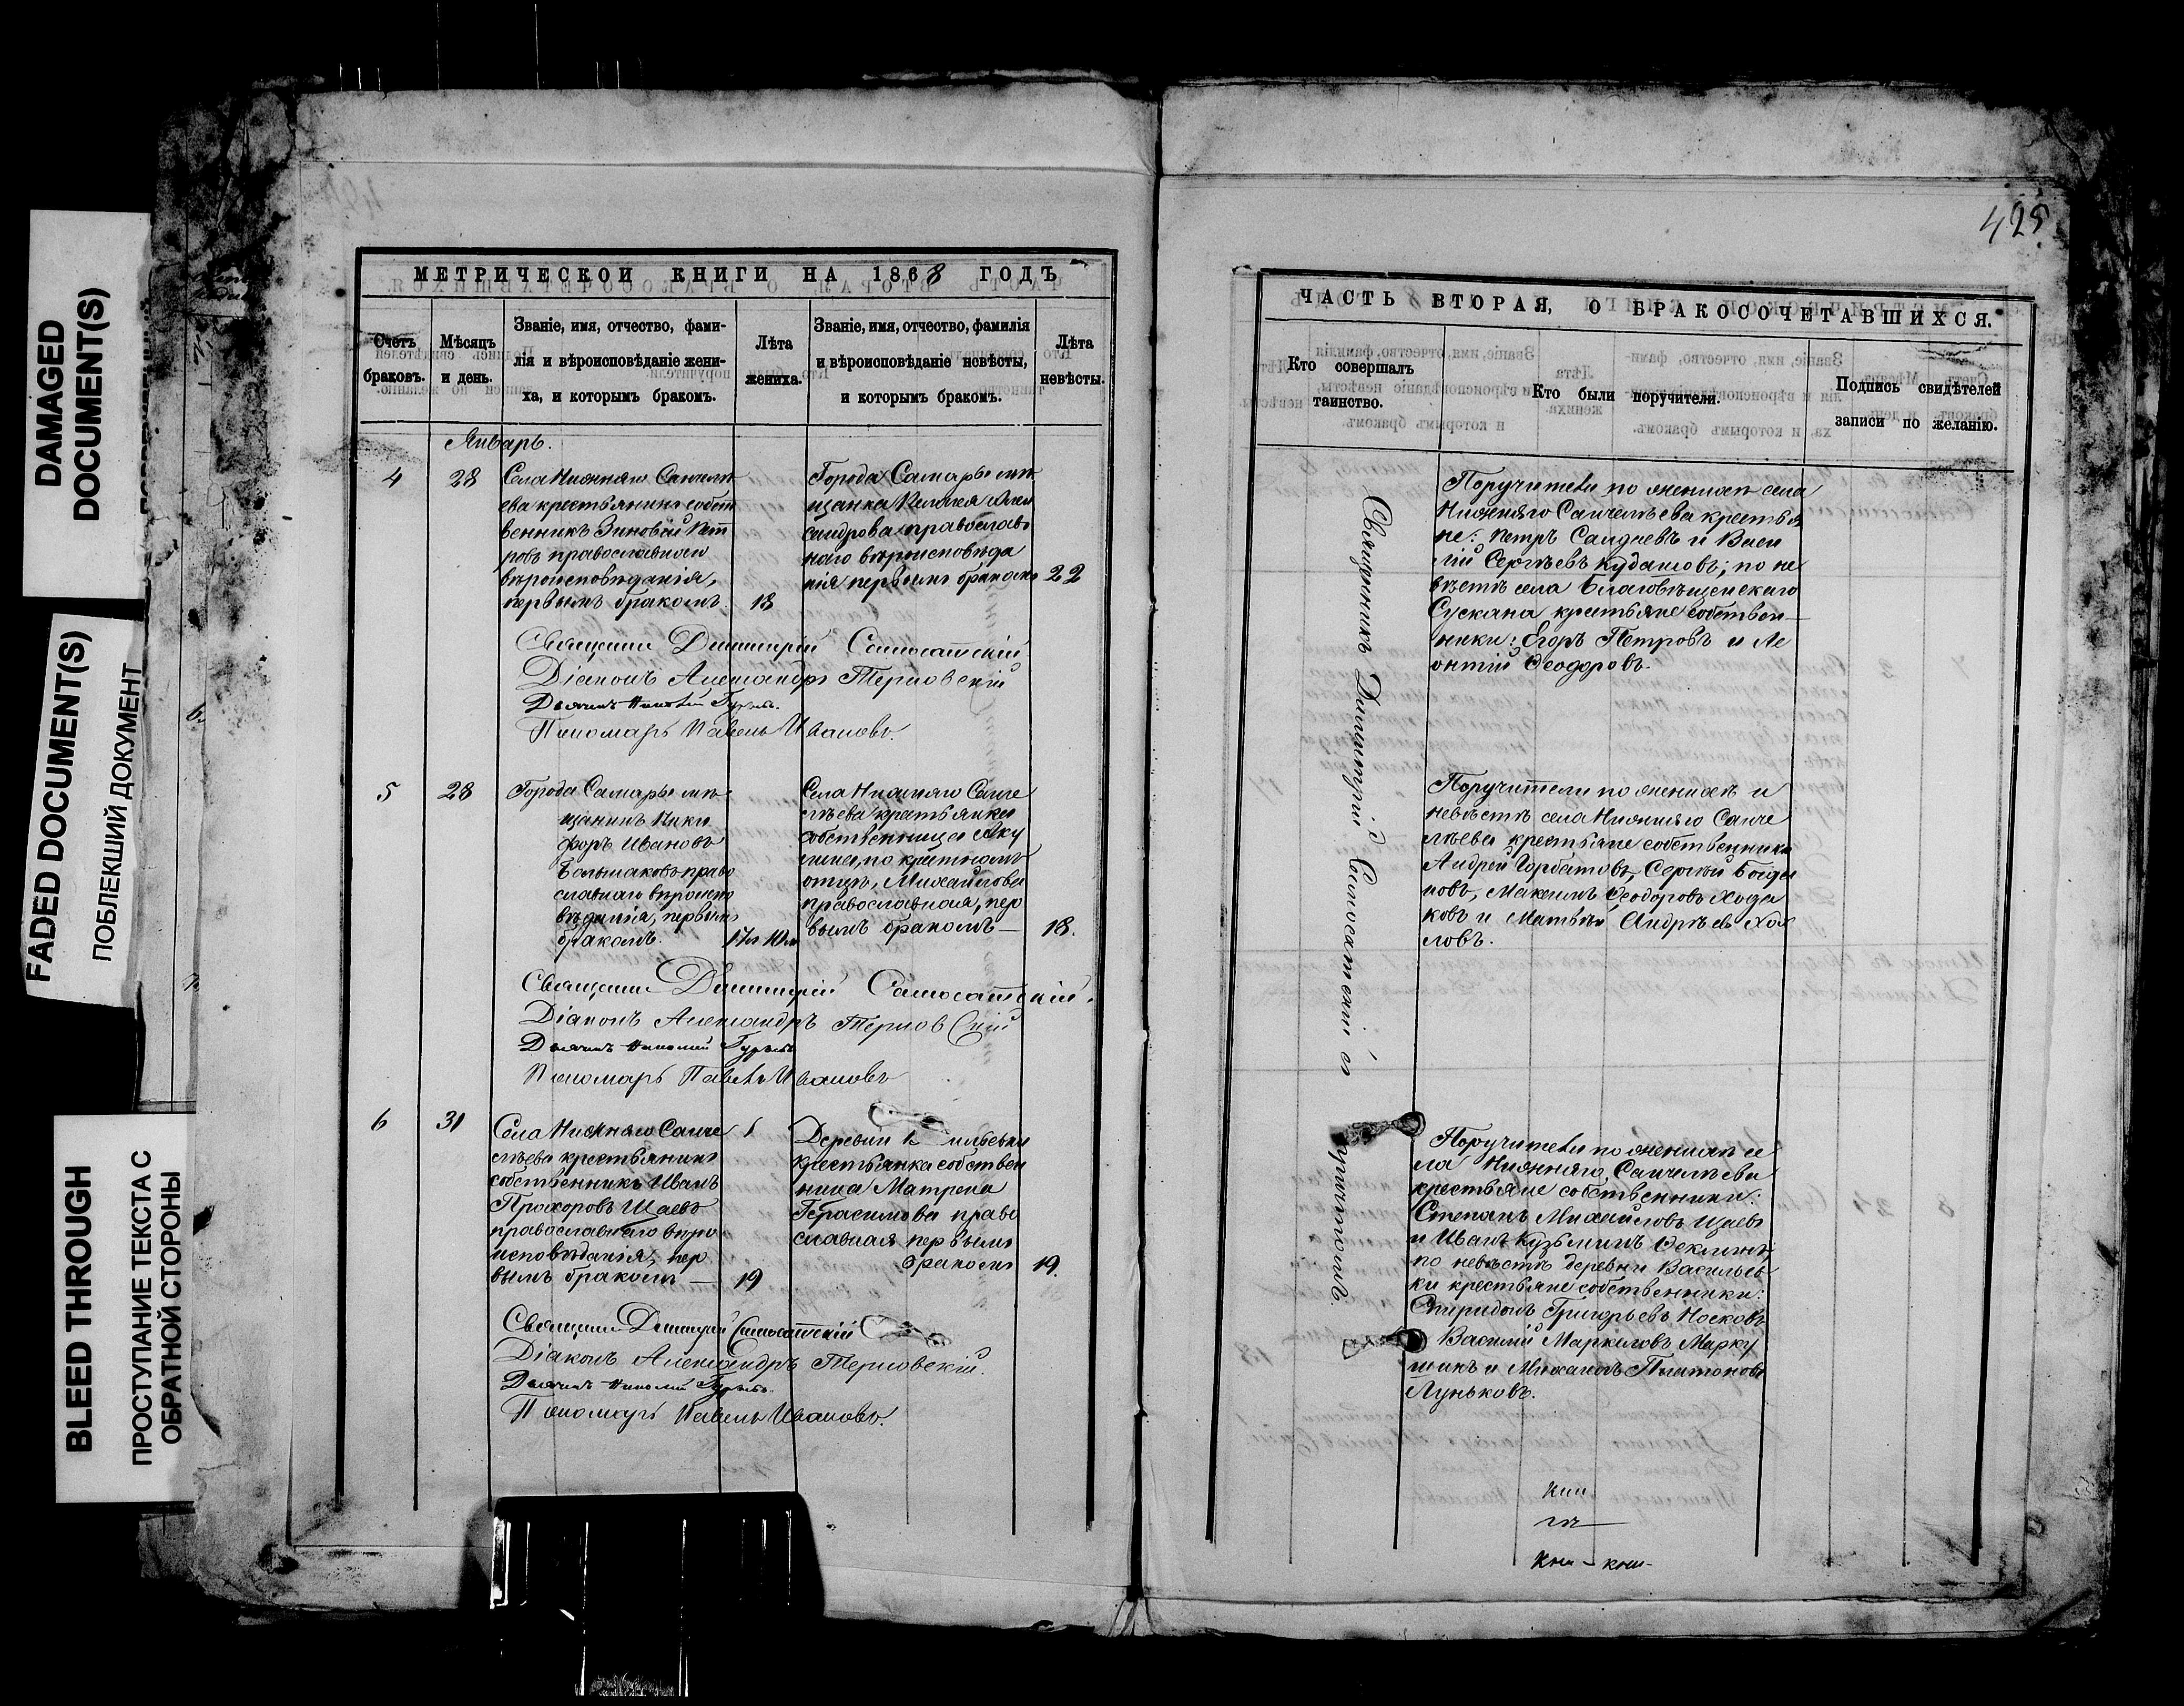 DAMAGED
DOCUMENT(S)
FADED DOCUMENT(S)
ПОБЛЕКШИЙ ДОКУМЕНТ
BLEED THROUGH
ПРОСТУПАНИЕ ТЕКСТА С
ОБРАТНОЙ СТОРОНЫ
МЕТРИЧЕСКОЙ КНИГИ НА 1868 ГОДЪ
Счетъ
браковъ.
Мѣсяцъ
и день.
Званіе, имя, отчество, фами-
лія и вѣроисповѣданіе жени-
ха, и которымъ бракомъ.
Лѣта
жениха.
Званіе, имя, отчество, фамилія
и вѣроисповѣданіе невѣсты,
и которымъ бракомъ.
Лѣта
невѣсты.
Январь.
4
28
Села Нижняго Санчелѣ
ева крестьянинъ собст
венникъ Зиновій Пет
ровъ православнаго
вѣроисповѣданія,
первымъ бракомъ.
18
Города Самары мѣ
щанка Алек
сандрова православ
наго вѣроисповѣда
нія первымъ бракомъ
22
Священникъ Димитрій Самосатскій
Діаконъ Александръ Терновскій
Дьячекъ Николай Гурьевъ.
Пономарь Павелъ Ивановъ.
5
28
Города Самары мѣ
щанинъ Ники
форъ Ивановъ
Большаковъ право
славнаго вѣроиспо
вѣданія, первымъ
бракомъ.
17 л 10 м
Села Нижняго Санче
лѣева крестьянка
собственница Аку
лина, по крестному
отцу, Михайлова
православная, пер
вымъ бракомъ —
18.
Священникъ Димитрій Самосатскій.
Діаконъ Александръ Терновскій
Дьячекъ Николай Гурьевъ
Пономарь Павелъ Ивановъ
6
31
Села Нижняго Санче
лѣева крестьянинъ
собственникъ Иванъ
Прохоровъ Щаевъ
православнаго вѣро
исповѣданія, пер
вымъ бракомъ —
19
Деревни
крестьянка собствен
ница Матрена
Герасимова право
славная первымъ
бракомъ
19.
Священникъ Димитрій Самосатскій
Діаконъ Александръ Терновскій.
Дьячекъ Николай Гурьевъ.
Пономарь Павелъ Ивановъ.
425
ЧАСТЬ ВТОРАЯ, О БРАКОСОЧЕТАВШИХСЯ.
Кто совершалъ
таинство.
Кто были поручители.
Подпись свидѣтелей
записи по желанію.
Священникъ Димитрій Самосатскій съ
причтомъ.
Поручители по женихѣ села
Нижняго Санчелѣева крестья
не: Петръ и Васи
лій Сергѣевъ Кудашовъ; по не
вѣстѣ села Благовѣщенскаго
Сускана крестьяне собствен—
ники: Егоръ Петровъ и Ле
онтій Ѳеодоровъ.
Поручители по женихѣ и
невѣстѣ села Нижняго Санче
лѣева крестьяне собственники
Андрей Горбатовъ, Сергѣй Богда
новъ, Максимъ Ѳеодоровъ Хода
ковъ и Матвѣй Андрѣевъ Хох
ловъ.
Поручители по женихѣ се
ла Нижняго Санчелѣева
крестьяне собственники:
Степанъ Михайловъ Щаевъ
и Иванъ Кузьминъ Ѳеклинъ;
по невѣстѣ деревни Васильев
ки крестьяне собственники:
Спиридонъ Григорьевъ Носковъ
Василій Маркиловъ Марку
шинъ и Михаилъ Платоновъ
Луньковъ.
кни
гп—
кни – кни-